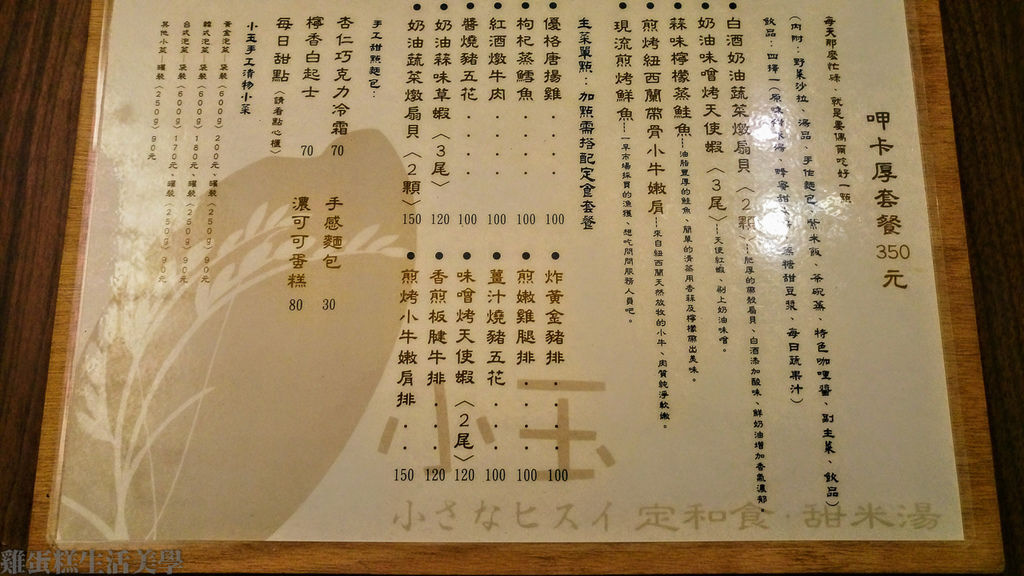 呷卡厚套餐 350元
每天那麼忙碌、就是要偶爾吃好一顆
(內附:野菜沙拉、湯品、手作麵包、紫米飯、茶碗蒸、特色咖哩醬、副主菜、飲品)
飲品:四擇一
每日蔬果汁)
●白酒奶油蔬菜燉扇貝〈2顆〉---肥厚的帶殼扇貝、白酒添加酸味、鮮奶油增加香氣濃郁。
●奶油味噌烤天使蝦〈3尾〉---天使紅蝦、刷上奶油味噌。
●蒜味檸檬蒸鮭魚---油脂豐厚的鮭魚、簡單的清蒸用香蒜及檸檬帶出美味。
●煎烤紐西蘭帶骨小牛嫩肩---來自紐西蘭天然放牧的小牛、肉質純淨軟嫩。
●現流煎烤鮮魚---早市場採買的漁獲、想吃問問服務人員吧。
主菜單點:加點需搭配定食套餐
●優格唐揚雞......100
●枸杞蒸鱈魚......100
●紅酒燉牛肉......100
●醬燒豬五花......100
●奶油蒜味草蝦〈3尾〉120
●奶油蔬菜燉扇貝〈2顆〉150
●炸黃金豬排....100
●煎嫩雞腿排....100
●薑汁燒豬五花...100
●味噌烤天使蝦〈2尾〉120
●香煎板腱牛排...120
●煎烤小牛嫩肩排..150
手工甜點麵包:
杏仁巧克力冷霜 70
檸香白起士 70
每日甜點〈請看點心櫃〉
手感麵包 30
濃可可蛋糕 80
小玉手工漬物小菜
黃金泡菜-袋裝(600g)200元、罐裝(250g)90元
韓式泡菜-袋裝(600g)180元、罐裝(250g)90元
台式泡菜-袋裝(600g)170元、罐裝(250g)90元
其他小菜-罐裝(250g)90元
小玉
小さなヒスイ 定和食·甜米湯
雞蛋糕生活美學